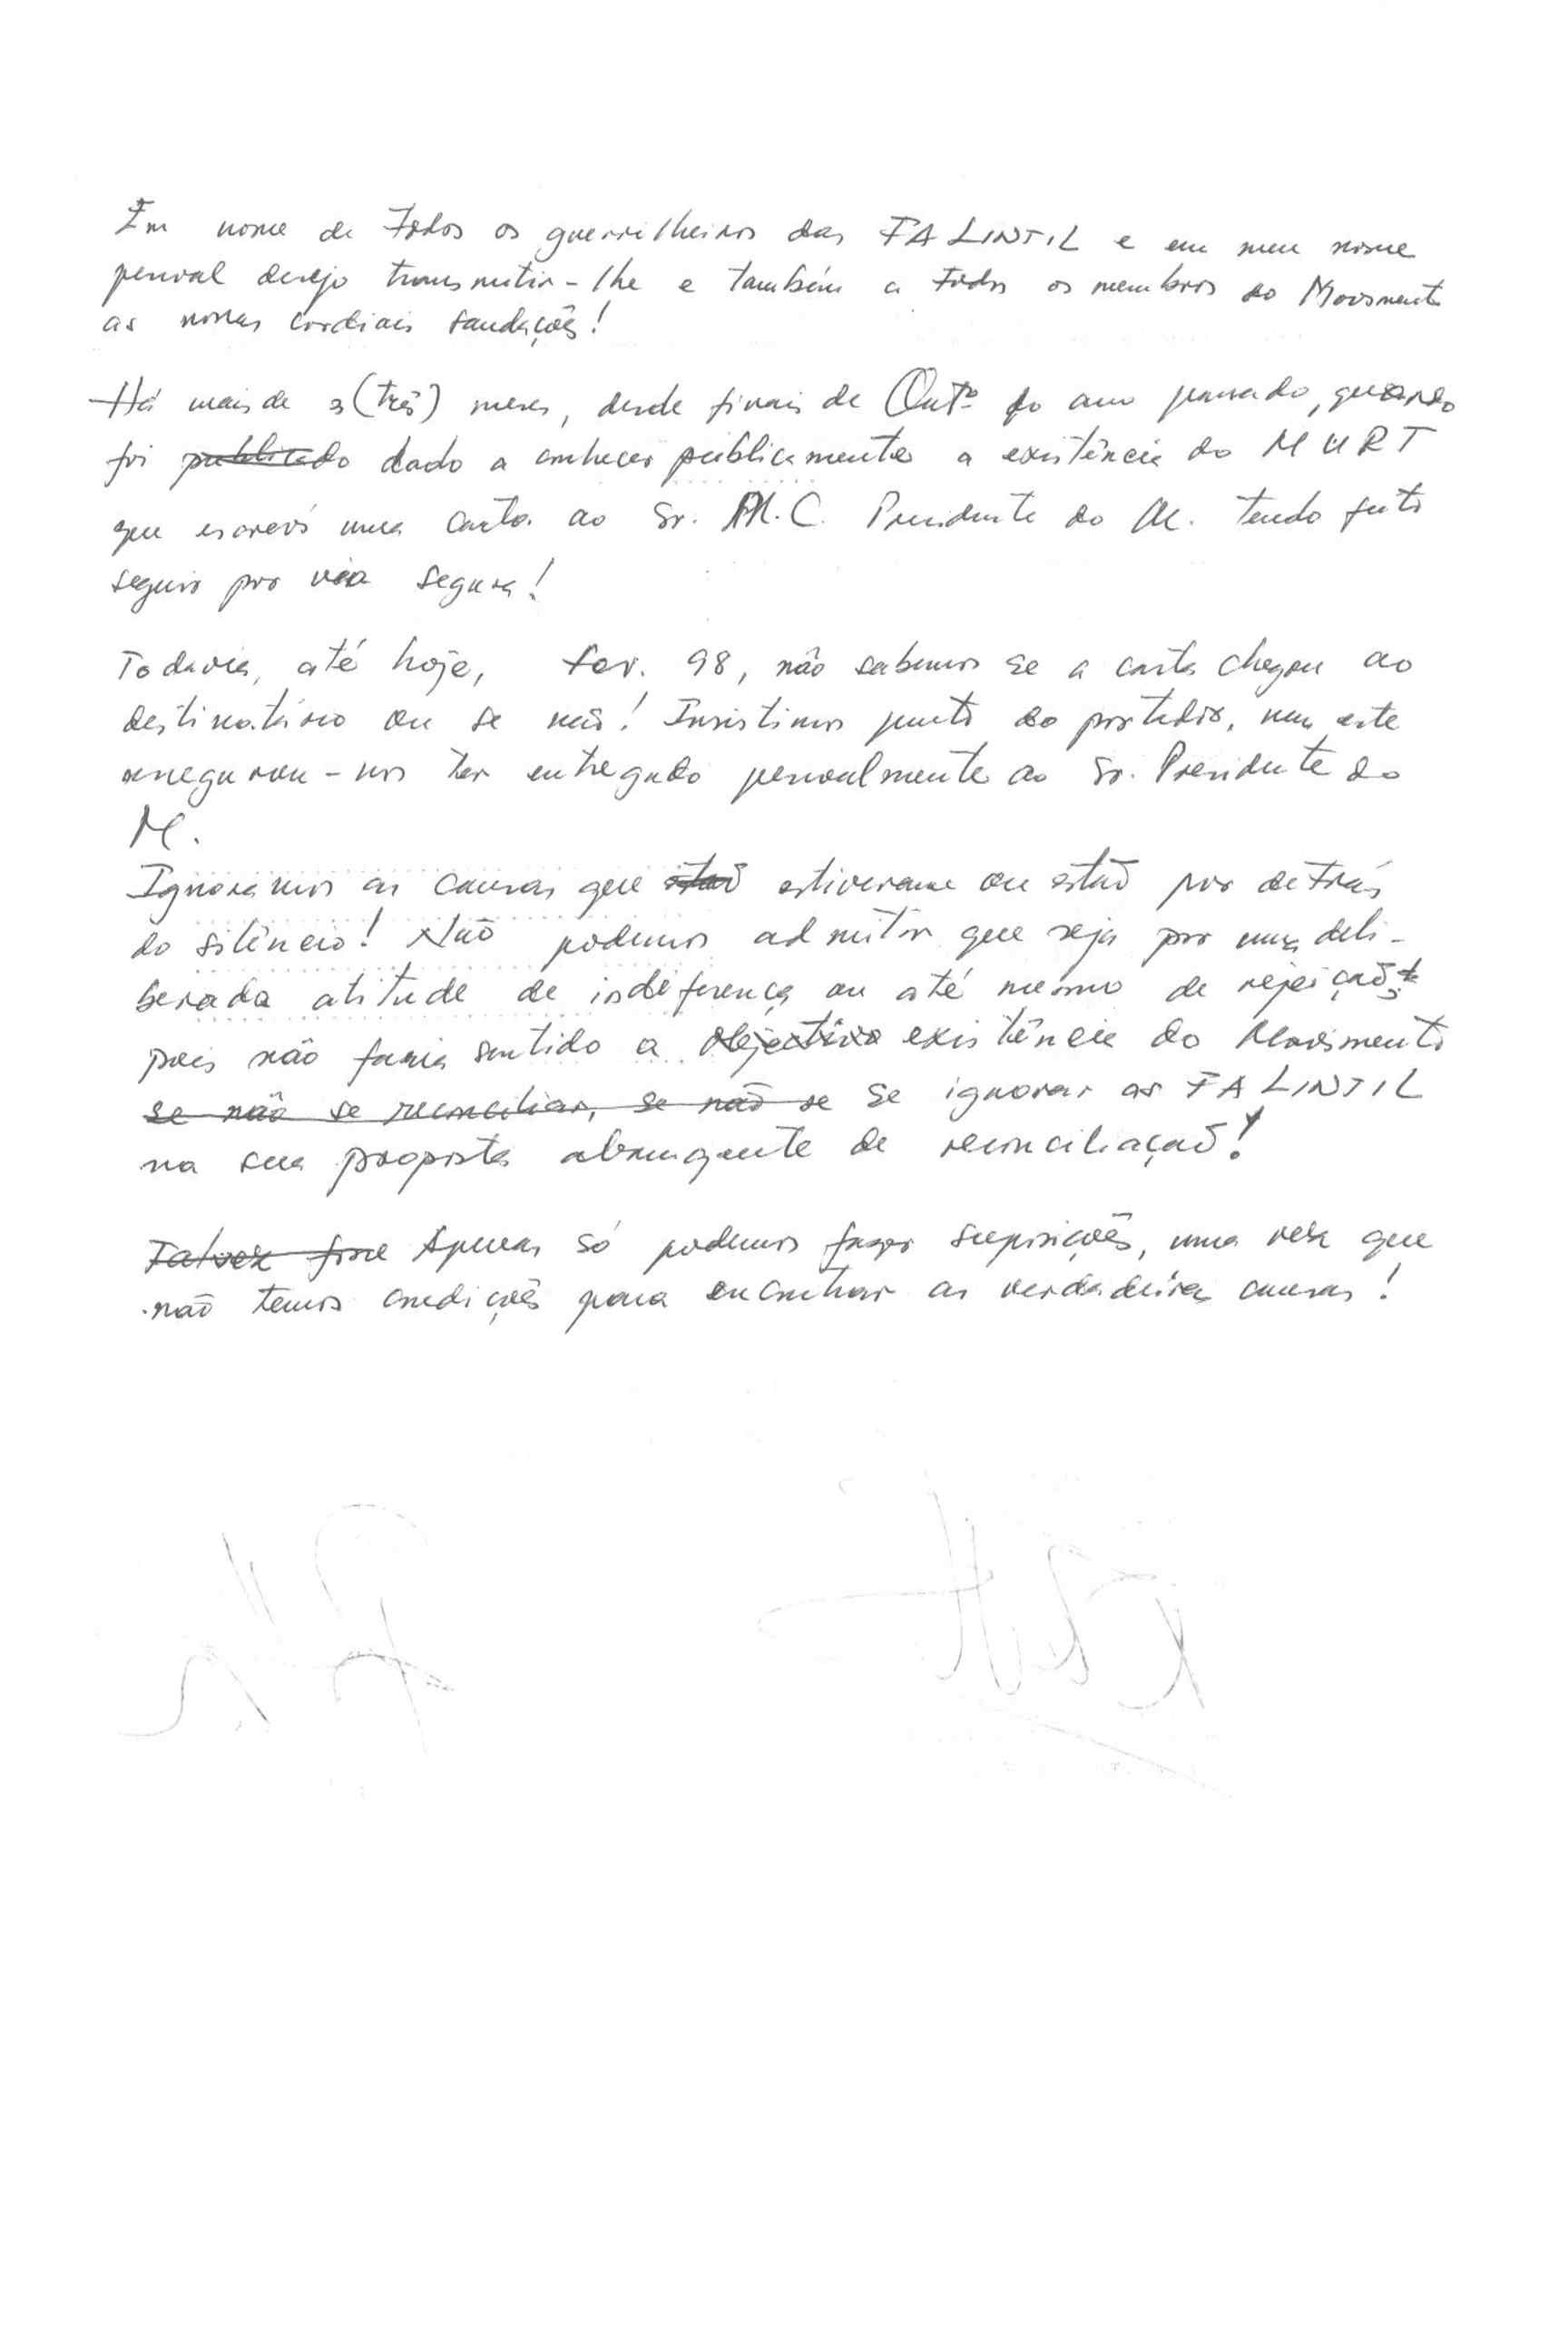 Em nome de todos os guerrilheiros das FALINTIL e em meu nome
pessoal desejo transmitir-lhe e também a todos os membros do Movimento
as nossas cordiais saudações!
Há mais de 3 (três) meses, desde finais de Outº do ano passado, quando
foi publicado dado a conhecer publicamente a existência do MURT
que escrevi uma carta ao Sr. M.C. Presidente do M. tendo feito
seguir por via segura!
Todavia, até hoje, fev. 98, não sabemos se a carta chegou ao
destinatário ou se não! Insistimos junto do portador, mas este
assegurou-nos ter entregado pessoalmente ao Sr. Presidente do
M.
Ignoramos as causas que estão estiveram ou estão por detrás
do silêncio! Não podemos admitir que seja por uma deli-
berada atitude de indiferença ou até mesmo de rejeição
pois não faria sentido a objectivo existência do Movimento
se não se reconciliar, se não se se ignorar as FALINTIL
na sua proposta abrangente de reconciliação!
Talvez fosse Apenas só podemos fazer suposições, uma vez que
não temos condições para encontrar as verdadeiras causas!